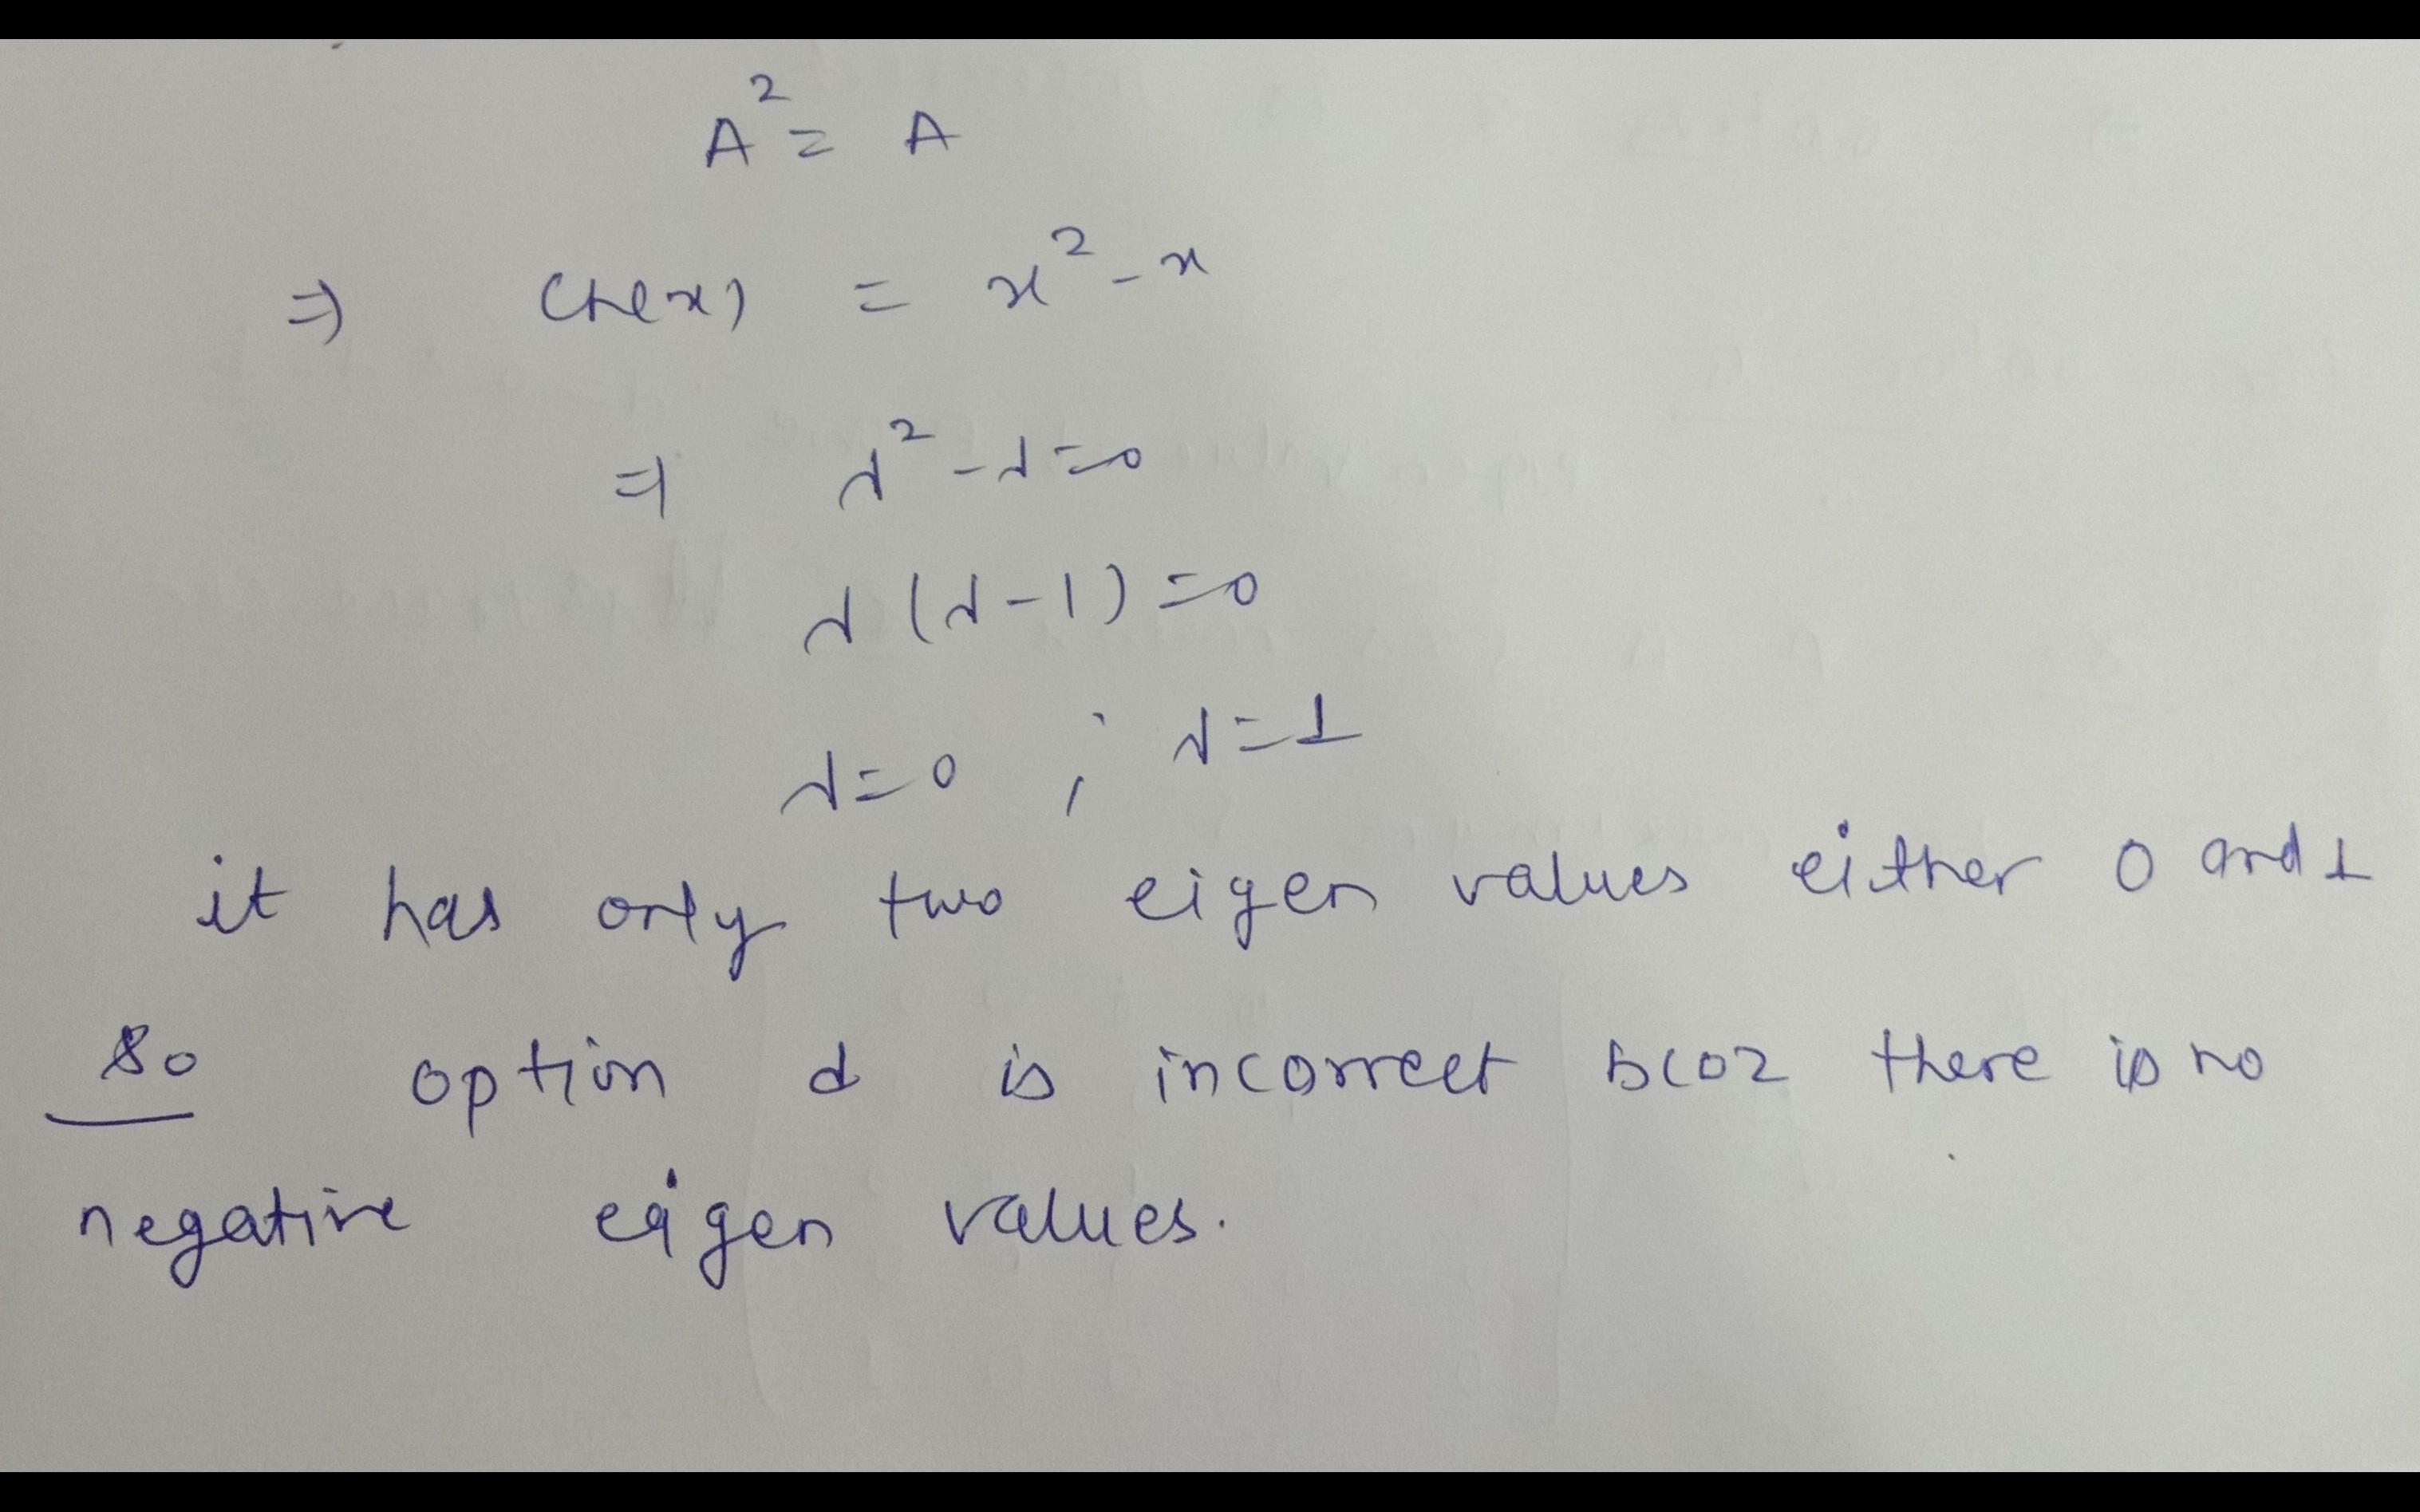 A² = A
⇒ Ch(x) = x² - x
⇒ λ² - λ = 0
λ (λ - 1) = 0
λ = 0 ; λ = 1
it has only two eigen values either 0 and 1
So option d is incorrect bcoz there is no
negative eigen values.